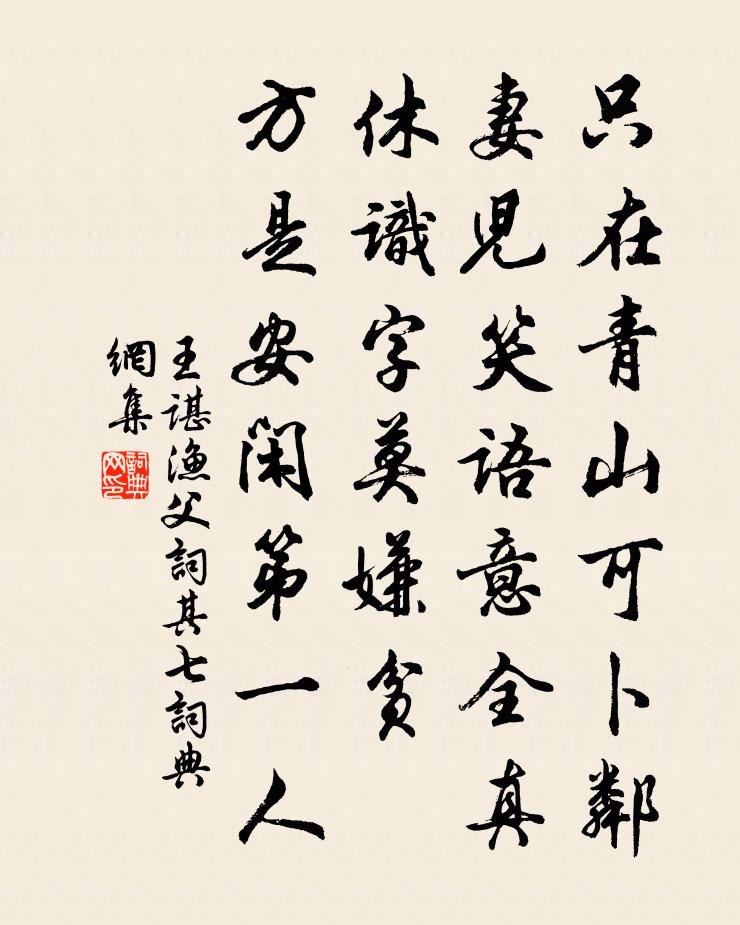 只在青山可卜鄰
妻児笑語意全真
休識字莫嫌貧
方是安閑第一人
王諶漁父詞其七詞典
網集
詞典網印